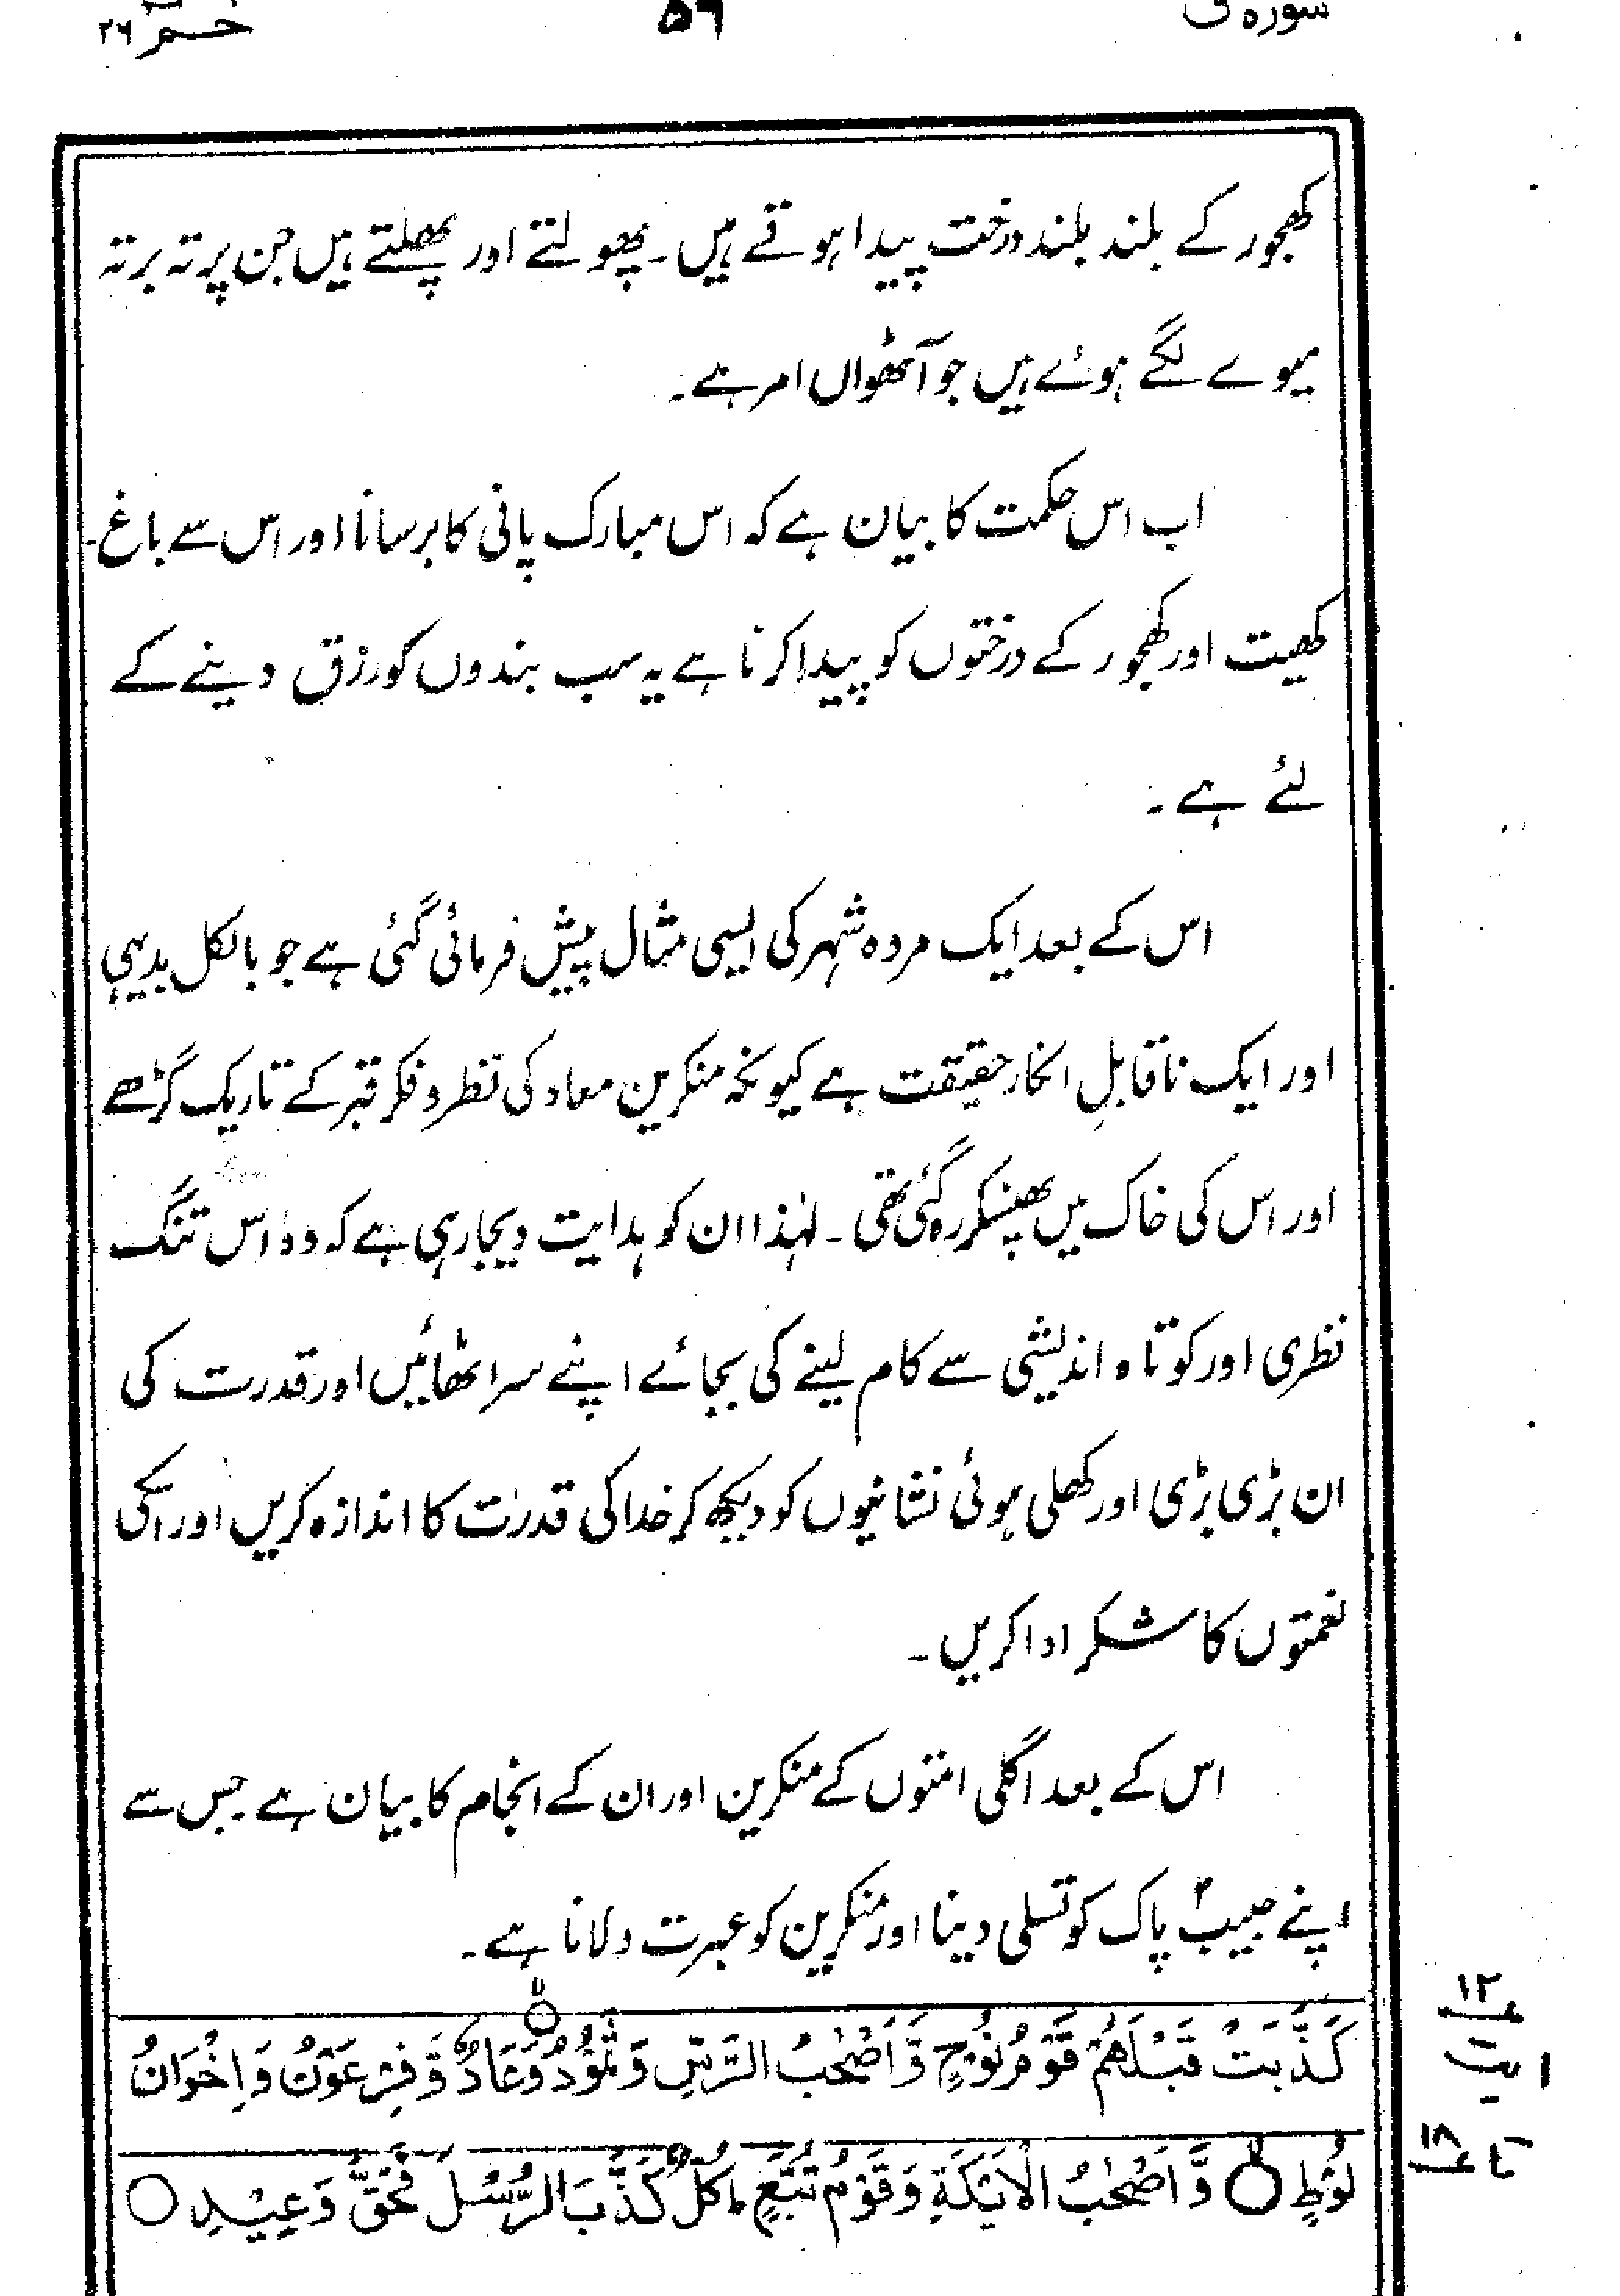 سورہ ق ۵۶ حٰـم ۲۶
کھجور کے بلند بلند درخت پیدا ہوتے ہیں۔ پھولتے اور پھلتے ہیں جن پر تہ بر تہ
میوے لگے ہوئے ہیں جو آٹھواں امر ہے۔
اب اس حکمت کا بیان ہے کہ اس مبارک پانی کا برسانا اور اس سے باغ۔
کھیت اور کھجور کے درختوں کو پیدا کرنا ہے یہ سب بندوں کو رزق دینے کے
لئے ہے۔
اس کے بعد ایک مردہ شہر کی ایسی مثال پیش فرمائی گئی ہے جو بالکل بدیہی
اور ایک ناقابلِ انکار حقیقت ہے کیونکہ منکرین معاد کی نظر و فکر قبر کے تاریک گڑھے
اور اس کی خاک میں پھنسکر رہ گئی تھی۔ لہٰذا ان کو ہدایت دیجارہی ہے کہ وہ اس تنگ
نظری اور کوتاہ اندیشی سے کام لینے کی بجائے اپنے سر اٹھائیں اور قدرت کی
ان بڑی بڑی اور کھلی ہوئی نشانیوں کو دیکھ کر خدا کی قدرت کا اندازہ کریں اور اسکی
نعمتوں کا شکر ادا کریں۔
اس کے بعد اگلی امتوں کے منکرین اور ان کے انجام کا بیان ہے جس سے
اپنے حبیبؐ پاک کو تسلی دینا اور منکرین کو عبرت دلانا ہے۔
كَذَّبَتْ قَبْلَهُمْ قَوْمُ نُوْحٍ وَّاَصْحٰبُ الرَّسِّ وَثَمُوْدُ ۝ وَعَادٌ وَّفِرْعَوْنُ وَاِخْوَانُ
لُوْطٍ ۝ وَّاَصْحٰبُ الْاَيْكَةِ وَقَوْمُ تُبَّعٍ ؕ كُلٌّ كَذَّبَ الرُّسُلَ فَحَقَّ وَعِيْدِ ۝
۱۲
ایت
تا ۱۸